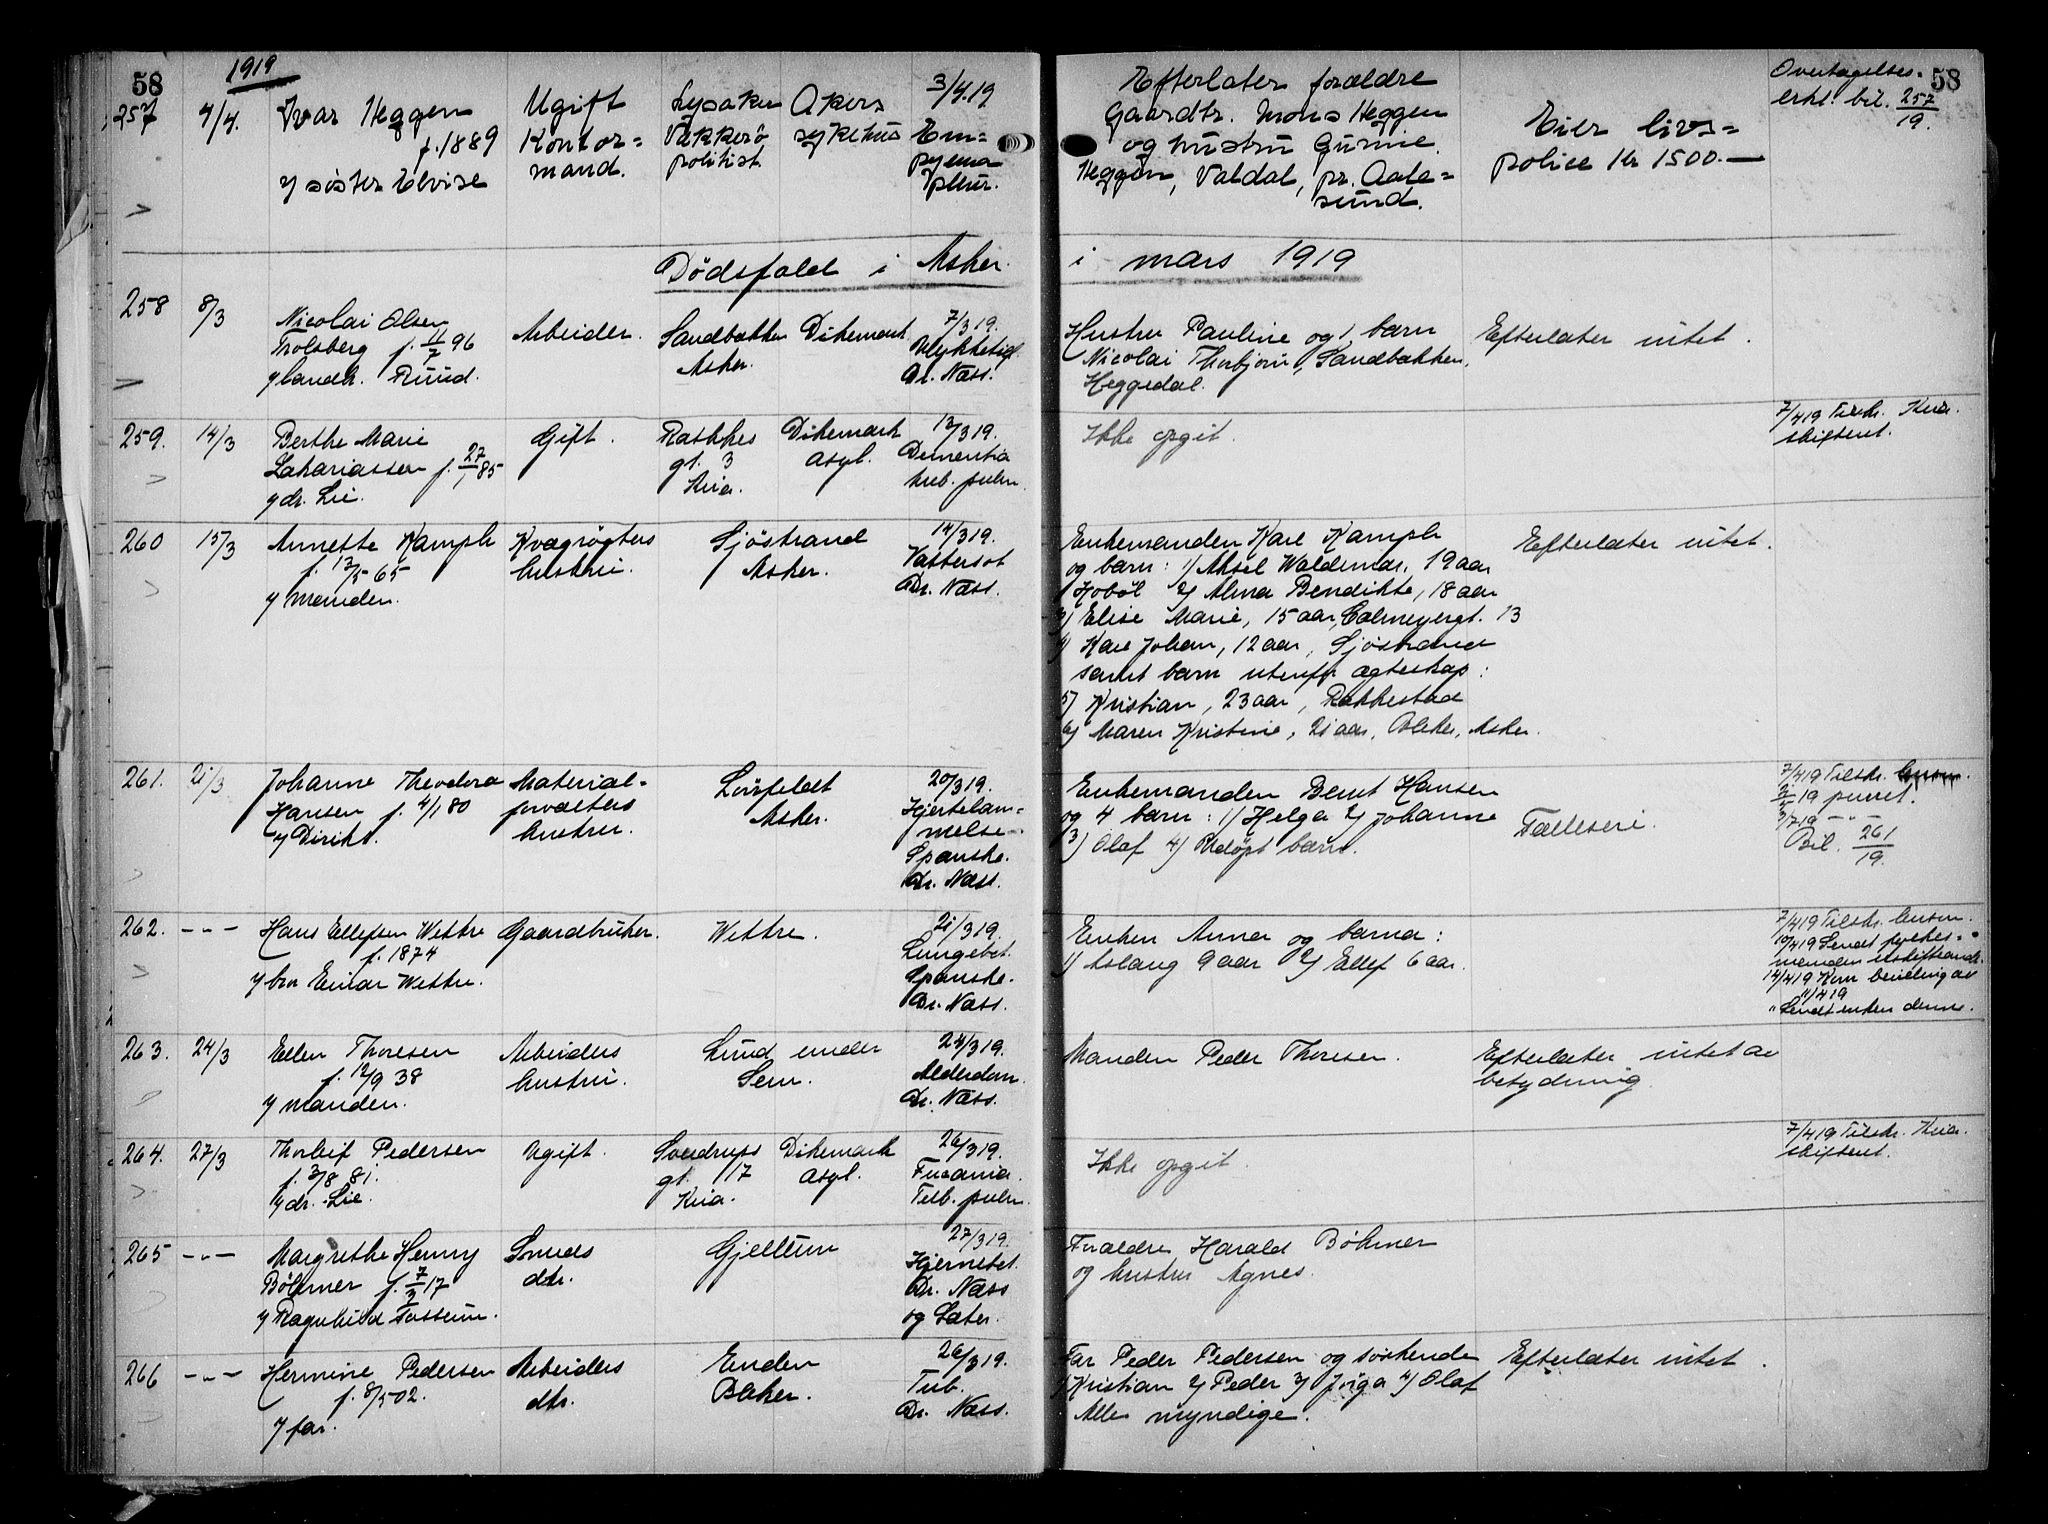 58
1919
58
257 4/4. Ivar Heggen
f. 1889
v/ søster Elvise
Ugift
Kontor=
mand.
Lysaker
Vækkerø
politist.
Akers
sykehus
3/4.19
Em=
pyema
pleur.
Efterlater forældre
Gaardbr. Mons Heggen
og hustru Gurine
Heggen, Valdal, pr. Aale=
sund.
Eier livs=
police Kr 1500.—
Overtagelses-
erkl. bil. 257/19.
Dødsfald i Asker i mars 1919
258 8/3
Nicolai Olsen
Trolsberg f. 11/7 96
v/ landh. Ruud.
Arbeider.
Sandbakken
Asker.
Dikemark
7/3 19.
Ulykkestilf.
Dr. Næss.
Hustru Pauline og 1 barn
Nicolai Thorbjørn, Sandbakken,
Heggedal.
Efterlater intet.
259. 14/3
Berthe Marie
Zakariassen f. 27/1 85
v/ dr. Lie.
Gift.
Rathkes
gt. 3
Kria.
Dikemark
Asyl.
12/3 19.
Dementia
tub. pulm.
Ikke opgit.
7/4 19 Tilskr. Kria.
skifteret.
260 15/3
Annette Kampli
f. 17/5 65
v/ manden.
Kvægrøgters
hustru.
Sjøstrand
Asker.
14/3 19.
Vattersot
Dr. Næss.
Enkemanden Karl Kampli
og barn: 1/ Aksel Waldemar, 19 aar
Hobøl 2/ Alma Bendikte, 18 aar
3/ Elise Marie, 15 aar, Calmeyergt. 13
4/ Karl Johan, 12 aar, Sjøstrand
samt barn utenfr ægteskap:
5/ Kristian, 23 aar, Rakkestad
6/ Maren Kristine, 21 aar, Blaker, Asker.
Efterlater intet.
261. 21/3
Johanne Theodora
Hansen f. 4/1 80
v/ Dirikt.
Material-
forvalters
hustru.
Løvfeldt
Asker.
20/3 19.
Hjertelam=
melse.
Spanske.
Dr. Næss.
Enkemanden Bernt Hansen
og 4 barn: 1/ Helga 2/ Johanne
3) Olaf 4) Udøpt barn.
Fælleseie.
7/4 19 Tilskr.
19 purret.
3/7 19 —"—
Bil. 261/19.
262. —"—
Hans Ellefsen Wettre
f. 1874
v/ bror Einar Wettre.
Gaardbruker.
Wettre.
21/3 19.
Lungebet.
Spanske.
Dr. Næss.
Enken Anna og barna:
1/ Aslaug 9 aar 2/ Ellef 6 aar.
7/4 19 Tilskr.
10/4 19 Sendt fylkes-
manden
14/4 19 Kom bevilling av
11/4 19
" Sendt enken denne.
263. 24/3
Ellen Thoresen
f. 12/9 38
v/ manden.
Arbeiders
hustru.
Lund under
Sem.
24/3 19.
Alderdom.
Dr. Næss.
Manden Peder Thoresen.
Efterlater intet av
betydning
264. 27/3
Thorleif Pedersen
f. 3/8 81.
v/ dr. Lie.
Ugift.
Sverdrups
gt. 17
Kria.
Dikemark
Asyl.
26/3 19.
Tub. pulm.
Ikke opgit.
7/4 19 Tilskr. Kria.
skifteret.
265 —"—
Margrethe Henny
Böhmer f. 7/3 17
v/ Ragnhild Tossum.
Smeds
dtr.
Gjellum
27/3 19.
Hjernebet.
Dr. Næss
og Sæter.
Forældre Harald Böhmer
og hustru Agnes.
266 —"—
Hermine Pedersen
f. 8/5 02.
v/ far.
Arbeiders
dtr.
Enden
Blaker.
26/3 19.
Tub.
Dr. Næss.
Far Peder Pedersen og søskende
1/ Kristian 2/ Peder 3/ Inga 4/ Olaf
Alle myndige.
Efterlater intet.